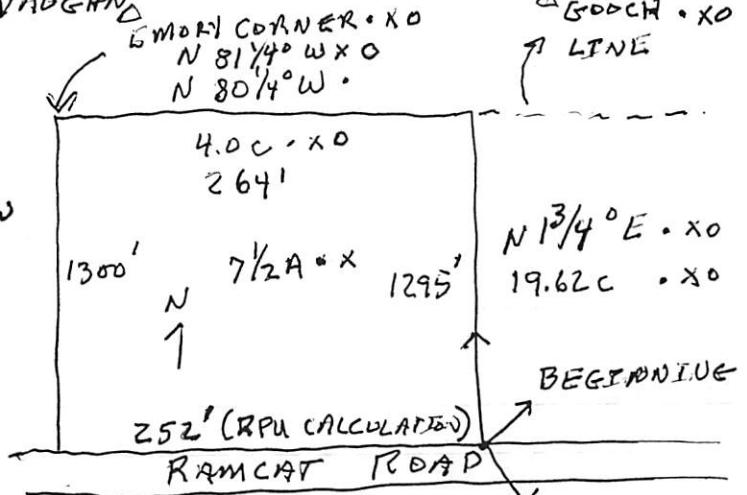 VAUGHAN
EMORY CORNER • XO
N 81 1/4° W XO
N 80 1/4° W •
GOOCH • XO
LINE
4.0 C • XO
264'
1300'
7 1/2 A • X
1295'
N 1 3/4° E • XO
19.62 C • XO
N
BEGINNING
252' (RPU CALCULATION)
RAMCAT ROAD